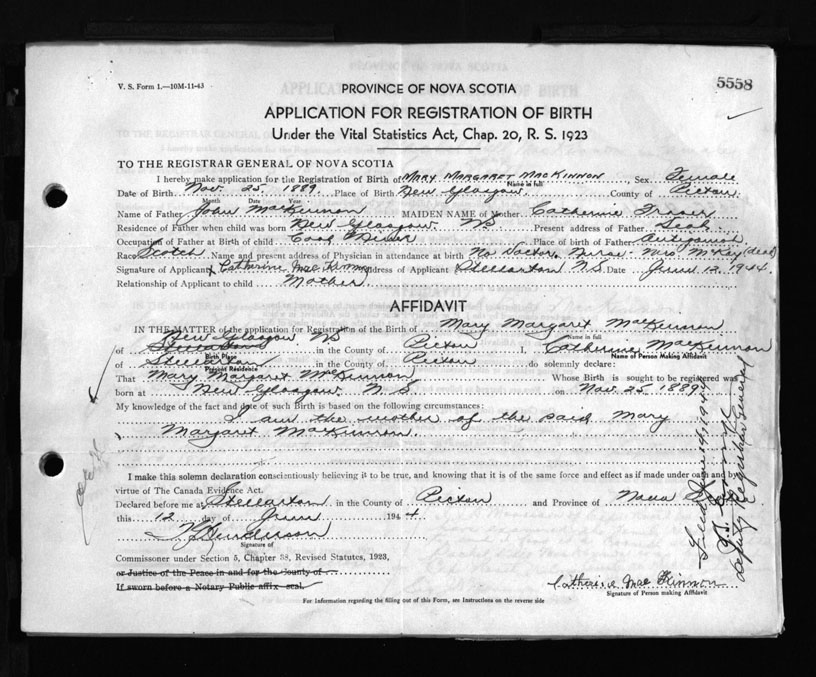 5558
V. S. Form 1.—10M-11-43
PROVINCE OF NOVA SCOTIA
APPLICATION FOR REGISTRATION OF BIRTH
Under the Vital Statistics Act, Chap. 20, R. S. 1923
TO THE REGISTRAR GENERAL OF NOVA SCOTIA
I hereby make application for the Registration of Birth of Mary Margaret MacKinnon, Sex Female
Name in full
Date of Birth Nov. 25. 1889. Place of Birth New Glasgow. County of Picton
Month Date Year
Name of Father John MacKinnon MAIDEN NAME of Mother Catherine Fraser
Residence of Father when child was born New Glasgow. NS Present address of Father
Occupation of Father at Birth of child Coal Miner Place of birth of Father Antigonish
Race Scotch Name and present address of Physician in attendance at birth No Doctor. Nurse. Mrs McKay (dead)
Signature of Applicant Catherine MacKinnon Address of Applicant Stellarton N.S. Date June 12. 1944.
Relationship of Applicant to child Mother.
AFFIDAVIT
IN THE MATTER of the application for Registration of the Birth of Mary Margaret MacKinnon
Name in full
New Glasgow NS
of Stellarton in the County of Picton I, Catherine MacKinnon
Birth Place Name of Person Making Affidavit
of Stellarton in the County of Picton do solemnly declare:
Present Residence
That Mary Margaret McKinnon Whose Birth is sought to be registered was
born at New Glasgow N S on Nov. 25 1889
My knowledge of the fact and date of such Birth is based on the following circumstances:
I am the mother of the said Mary
Margaret MacKinnon.
I make this solemn declaration conscientiously believing it to be true, and knowing that it is of the same force and effect as if made under oath and by
virtue of The Canada Evidence Act.
Declared before me at Stellarton in the County of Picton and Province of Nova
this 12 day of June 1944
Signature of
Commissioner under Section 5, Chapter 38, Revised Statutes, 1923,
or Justice of the Peace in and for the County of
If sworn before a Notary Public affix seal.
Catherine MacKinnon
Signature of Person making Affidavit
For Information regarding the filling out of this Form, see Instructions on the reverse side
Filed June 19, 1944
Deputy Registrar General